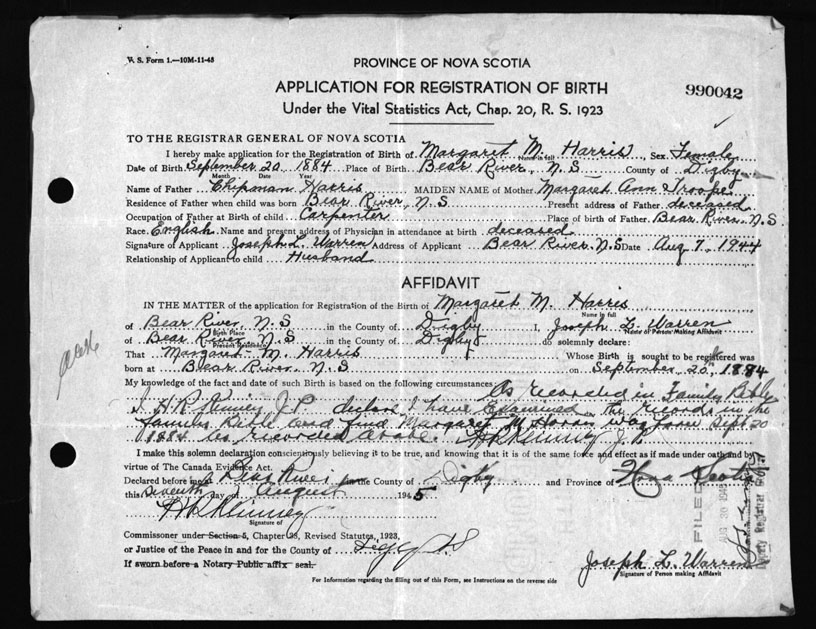 V. S. Form 1.—10M-11-43
PROVINCE OF NOVA SCOTIA
APPLICATION FOR REGISTRATION OF BIRTH
990042
Under the Vital Statistics Act, Chap. 20, R. S. 1923
TO THE REGISTRAR GENERAL OF NOVA SCOTIA
I hereby make application for the Registration of Birth of Margaret M. Harris, Sex Female
Name in full
Date of Birth September 20 1884 Place of Birth Bear River, N S County of Digby
Month Date Year
Name of Father Chipman Harris MAIDEN NAME of Mother Margaret Ann Troope
Residence of Father when child was born Bear River, N.S Present address of Father deceased
Occupation of Father at Birth of child Carpenter Place of birth of Father Bear River, N.S
Race English Name and present address of Physician in attendance at birth deceased
Signature of Applicant Joseph L. Warren Address of Applicant Bear River, N.S Date Aug 7, 1944
Relationship of Applicant to child Husband
AFFIDAVIT
IN THE MATTER of the application for Registration of the Birth of Margaret M. Harris
Name in full
of Bear River, N.S in the County of Digby I, Joseph L. Warren
Birth Place Name of Person Making Affidavit
of Bear River, N S in the County of Digby do solemnly declare:
Present Residence
That Margaret M. Harris Whose Birth is sought to be registered was
born at Bear River, N.S. on September 20, 1884
My knowledge of the fact and date of such Birth is based on the following circumstances As recorded in Family Bible
I H R Kinney J.P. declare I have Examined the records in the
family Bible and find Margaret M Harris was born Sept 20
1884 as recorded above. H R Kinney J.P.
I make this solemn declaration conscientiously believing it to be true, and knowing that it is of the same force and effect as if made under oath and by
virtue of The Canada Evidence Act.
Declared before me at Bear River in the County of Digby and Province of Nova Scotia
this Seventh day of August 1945
H R Kinney
Signature of
Commissioner under Section 5, Chapter 38, Revised Statutes, 1923,
or Justice of the Peace in and for the County of Digby N S
If sworn before a Notary Public affix seal.
Joseph L. Warren
Signature of Person making Affidavit
For Information regarding the filling out of this Form, see Instructions on the reverse side
FILED
AUG 30 1945
Deputy Registrar General